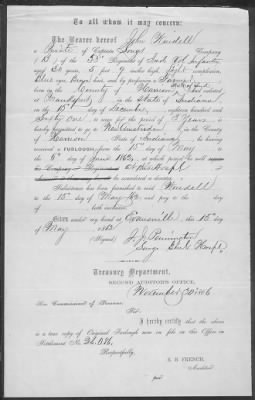 To all whom it may concern:
The Bearer hereof John Windell
a Private of Captain Long's Company
(B) of the 53d Regiment of Ind Vol Infantry
aged years, 5 feet 9 inches high, light complexion,
Blue eyes, hair, and by profession a Farmer
born in the County of Harrison State of Ind and enlisted
at in the State of Indiana
on the 15th day of eighteen hundred and
Sixty One to serve for the period of 3 Years is
hereby permitted to go to in the County
of Harrison State of Indiana he having
received a FURLOUGH from the 15th day of May
to the 5th day of June 1862, at which period he will
or be considered a deserter.
Subsistence has been furnished to said Windell
to the 15th day of May 62 and pay to the day of
both inclusive.
Given under my hand at Evansville this 15th
day of May 1862
(Signed) J. J. Pennington
Surg
Treasury Department,
SECOND AUDITOR'S OFFICE,
November
Hon. Commissioner of Pensions
Sir:
I hereby certify that the above
is a true copy of Original Furlough now on file in this Office in
Settlement No.
Respectfully,
E. B. FRENCH,
Auditor
per